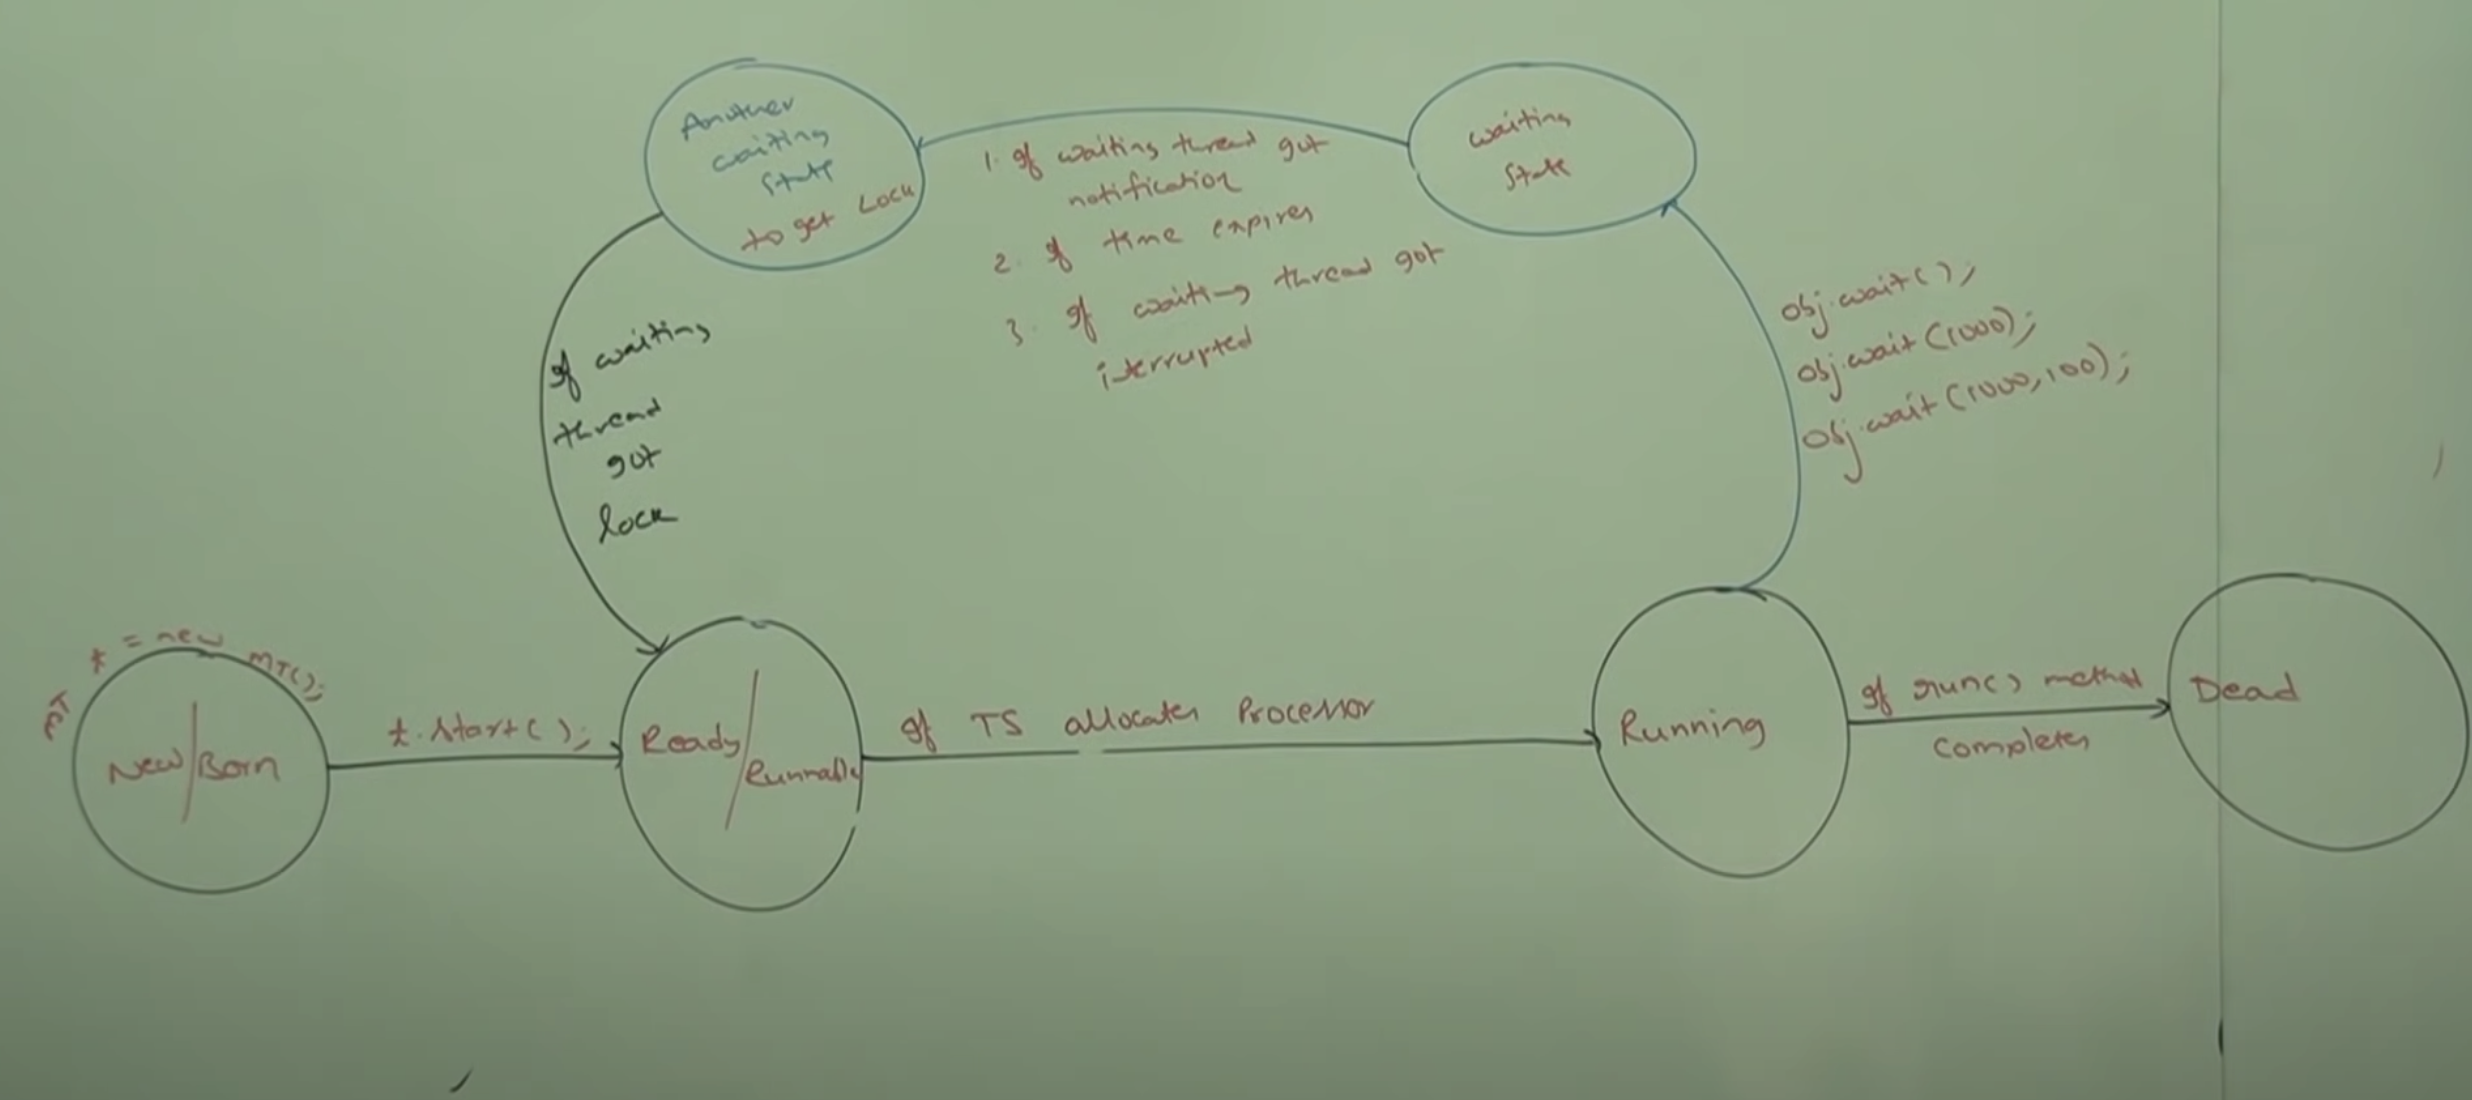 Another
waiting
State
to get Lock
waiting
State
1. If waiting thread got
notification
2. If time expires
3. If waiting thread got
interrupted
obj.wait();
obj.wait(1000);
obj.wait(1000,100);
If waiting
thread
got
lock
MT t = new MT();
New/Born
t.start();
Ready/Runnable
If TS allocates Processor
Running
If run() method
completes
Dead